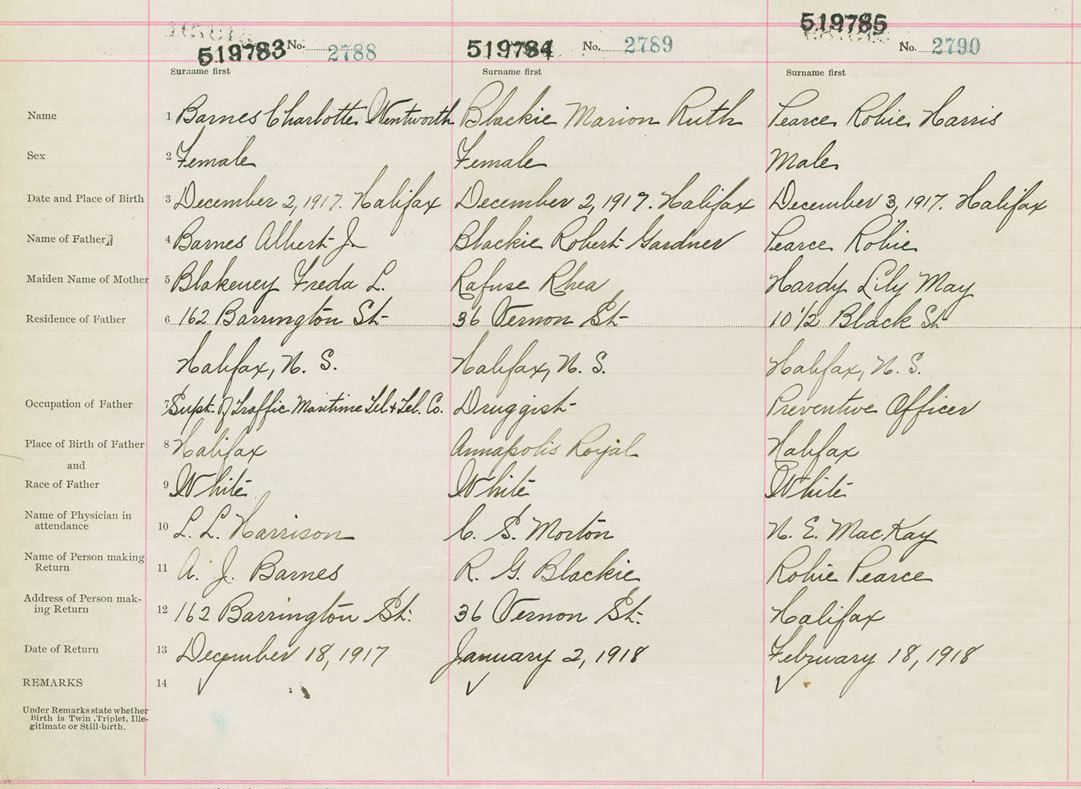 519783 No. 2788 519784 No. 2789 519785 No. 2790
Surname first Surname first Surname first
Name 1 Barnes Charlotte Wentworth Blackie Marion Ruth Pearce Robie Harris
Sex 2 Female Female Male
Date and Place of Birth 3 December 2, 1917. Halifax December 2, 1917. Halifax December 3, 1917. Halifax
Name of Father 4 Barnes Albert J. Blackie Robert Gardner Pearce Robie
Maiden Name of Mother 5 Blakeney Freda L. Rafuse Rhea Hardy Lily May
Residence of Father 6 162 Barrington St. 36 Vernon St. 10 1/2 Black St.
Halifax, N. S. Halifax, N. S. Halifax, N. S.
Occupation of Father 7 Supt. of Traffic Maritime Tel. & Tel. Co. Druggist Preventive Officer
Place of Birth of Father 8 Halifax Annapolis Royal Halifax
and
Race of Father 9 White White White
Name of Physician in
attendance 10 L. L. Harrison C. S. Morton N. E. MacKay
Name of Person making
Return 11 A. J. Barnes R. G. Blackie Robie Pearce
Address of Person mak-
ing Return 12 162 Barrington St. 36 Vernon St. Halifax
Date of Return 13 December 18, 1917 January 2, 1918 February 18, 1918
REMARKS 14
Under Remarks state whether
Birth is Twin, Triplet, Ille-
gitimate or Still-birth.